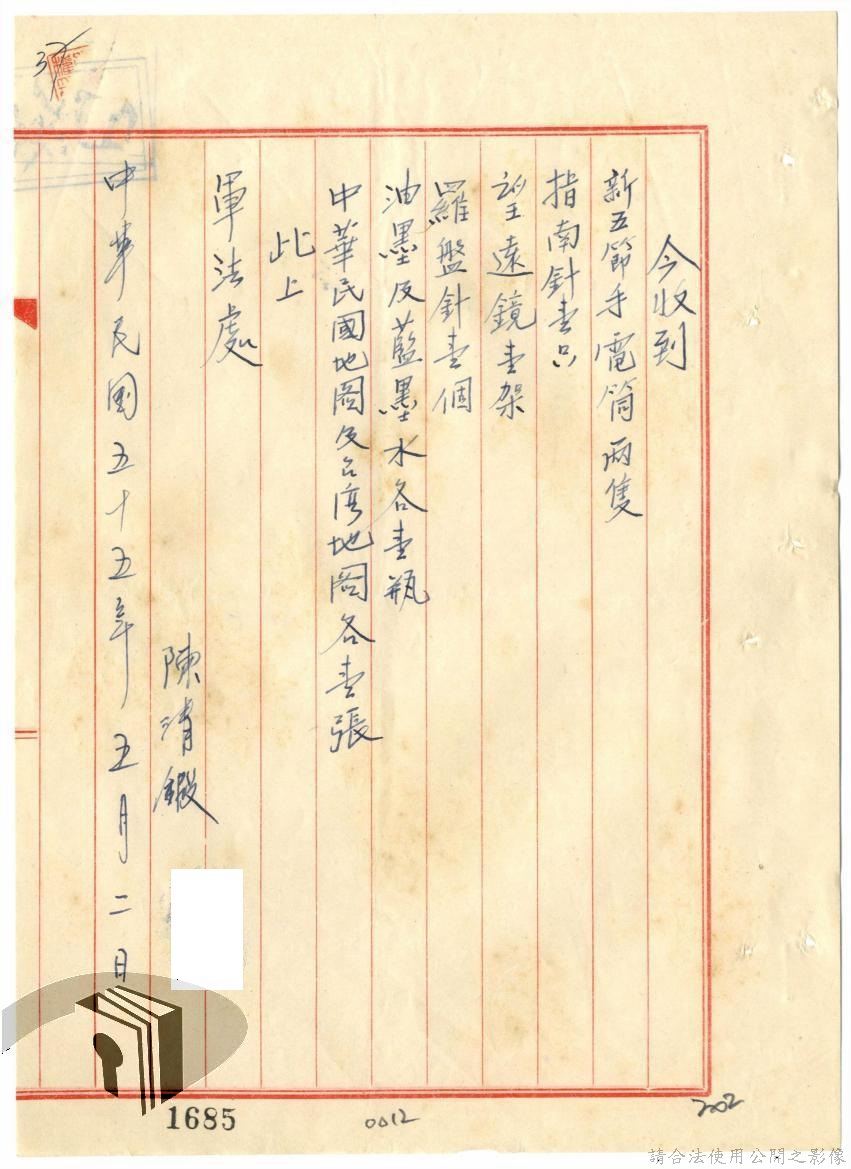 今收到
新五節手電筒兩隻
指南針壹只
望遠鏡壹架
羅盤針壹個
油墨及藍墨水各壹瓶
中華民國地圖及台湾地圖各壹張
此上
軍法處
陳清
中華民國五十五年五月二日
37
1685
0012
202
請合法使用公開之影像